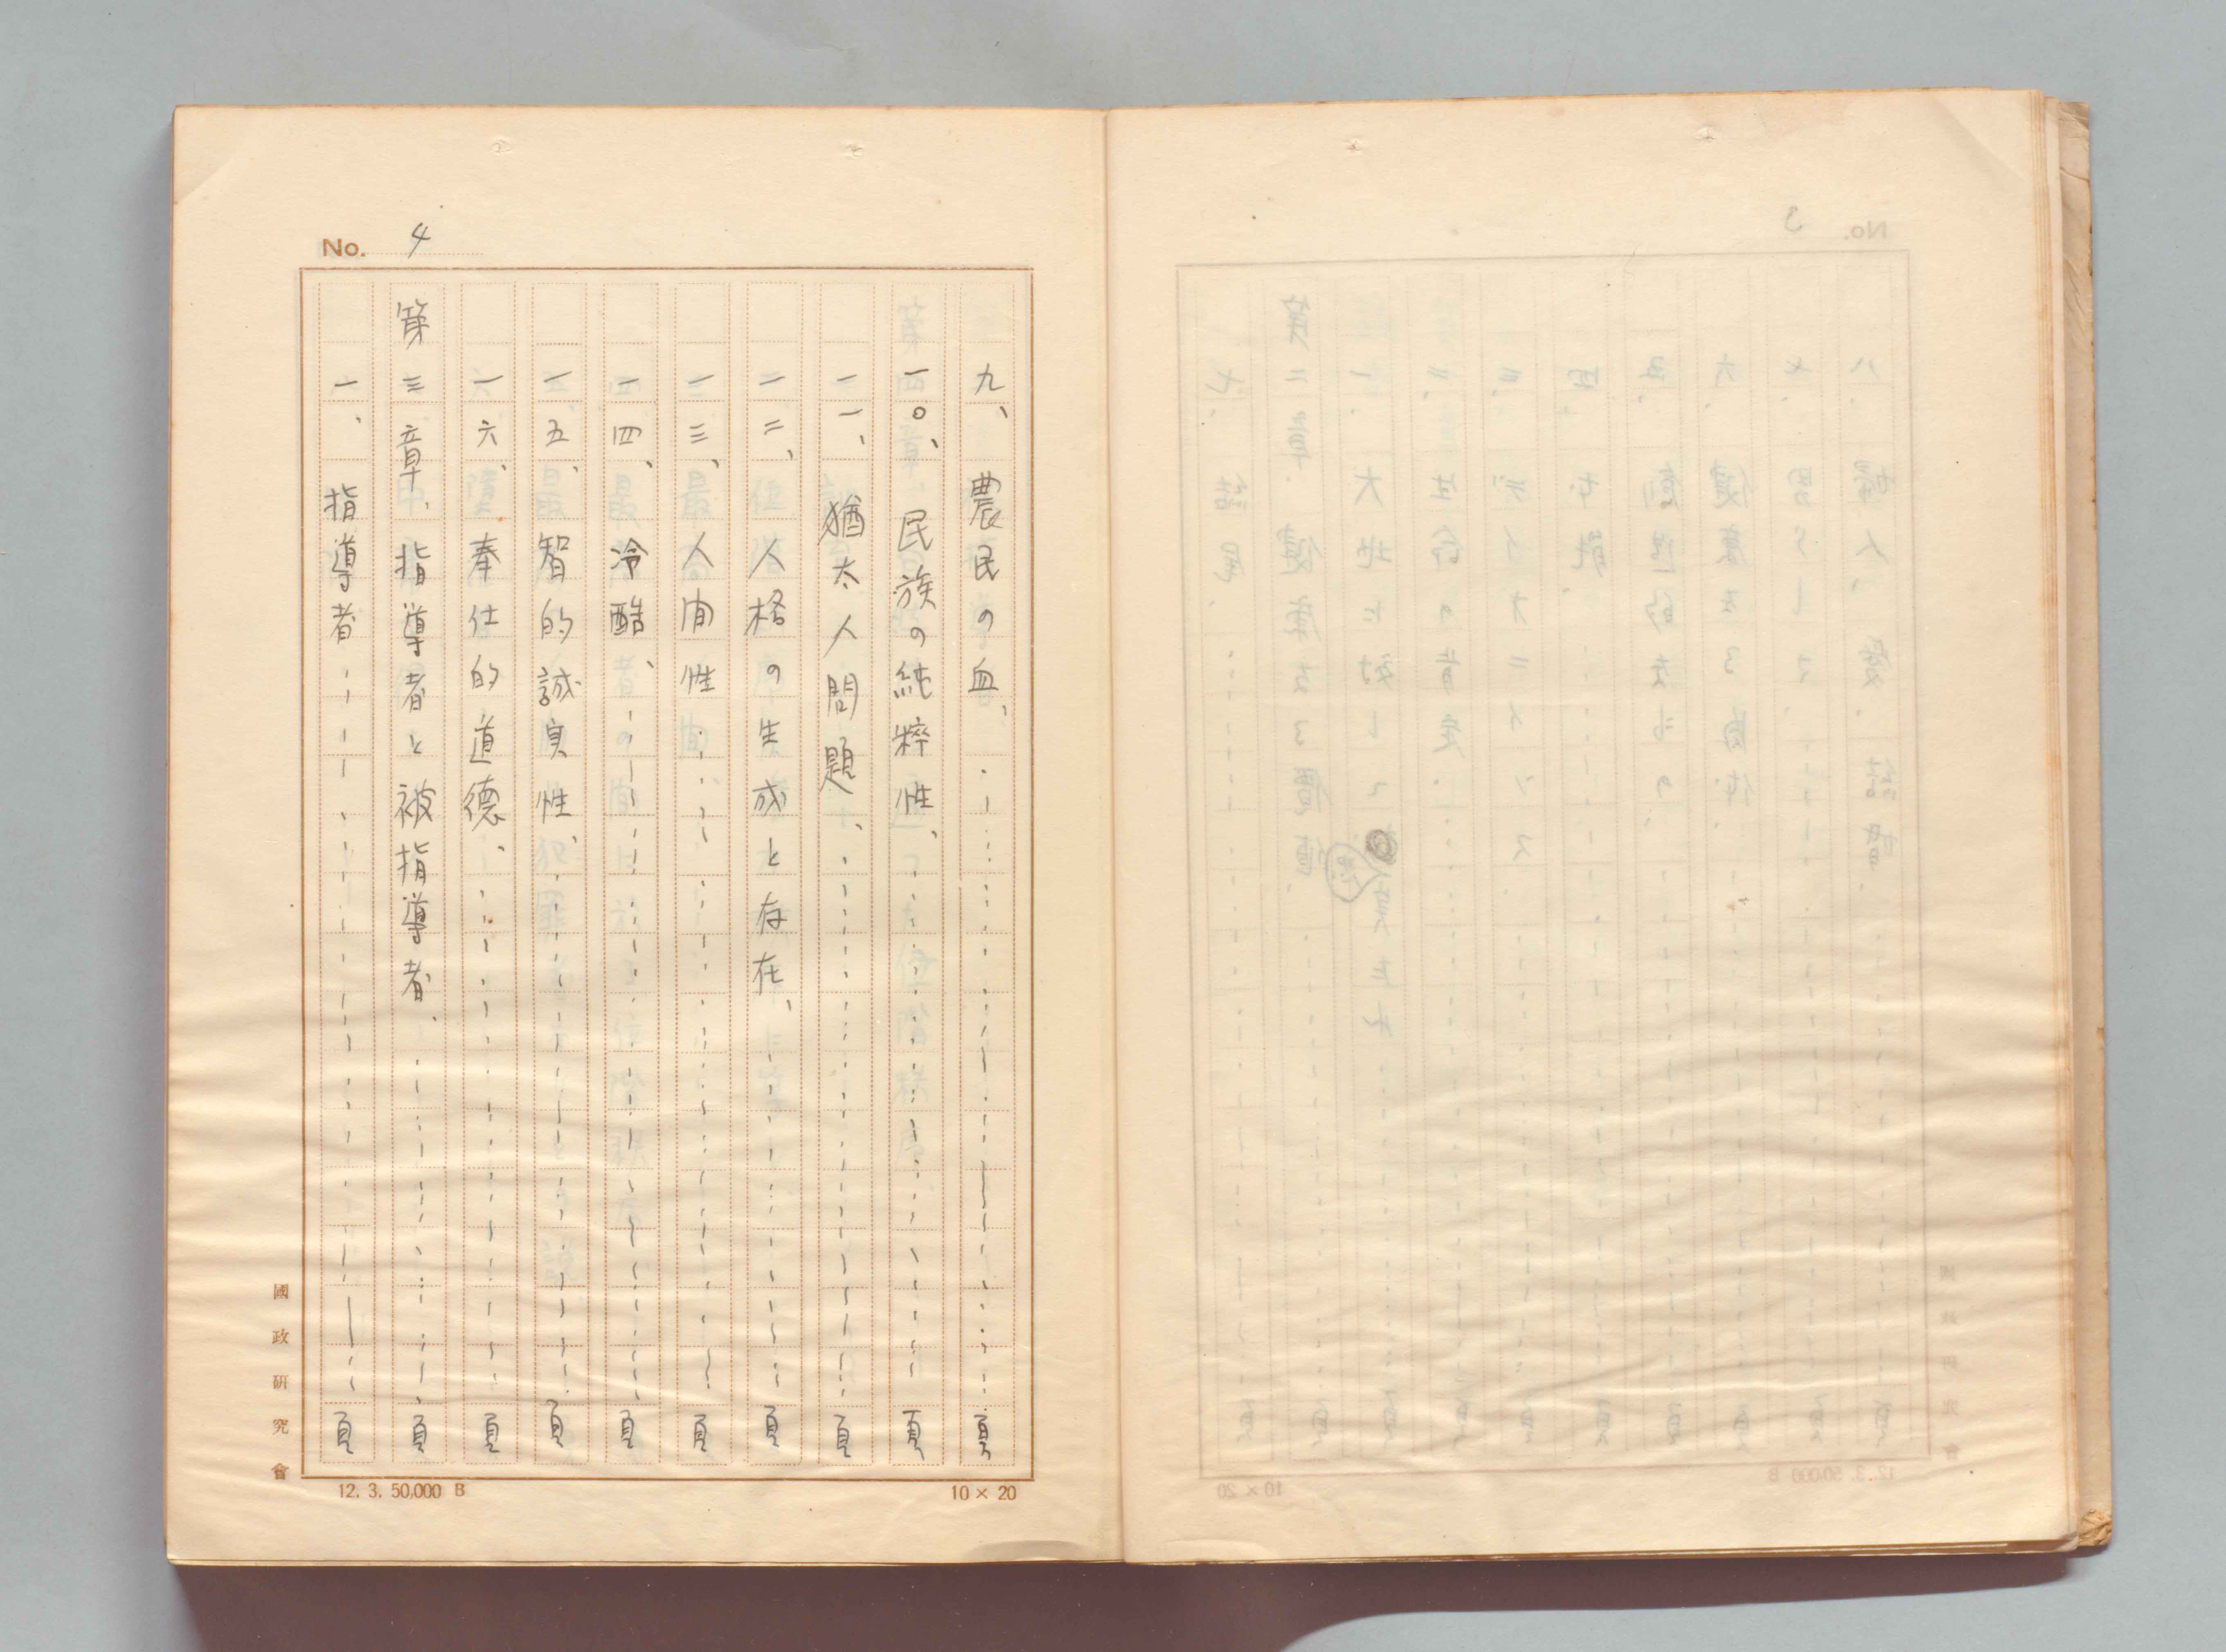 No. 4
九、農民の血、……頁
一〇、民族の純粹性、……頁
一一、猶太人問題、……頁
一二、人格の生成と存在、……頁
一三、人间性……頁
一四、冷酷、……頁
一五、智的誠実性、……頁
一六、奉仕的道徳、……頁
第三章、指導者と被指導者、……頁
一、指導者……頁
國政研究會
12. 3. 50,000 B
10 × 20